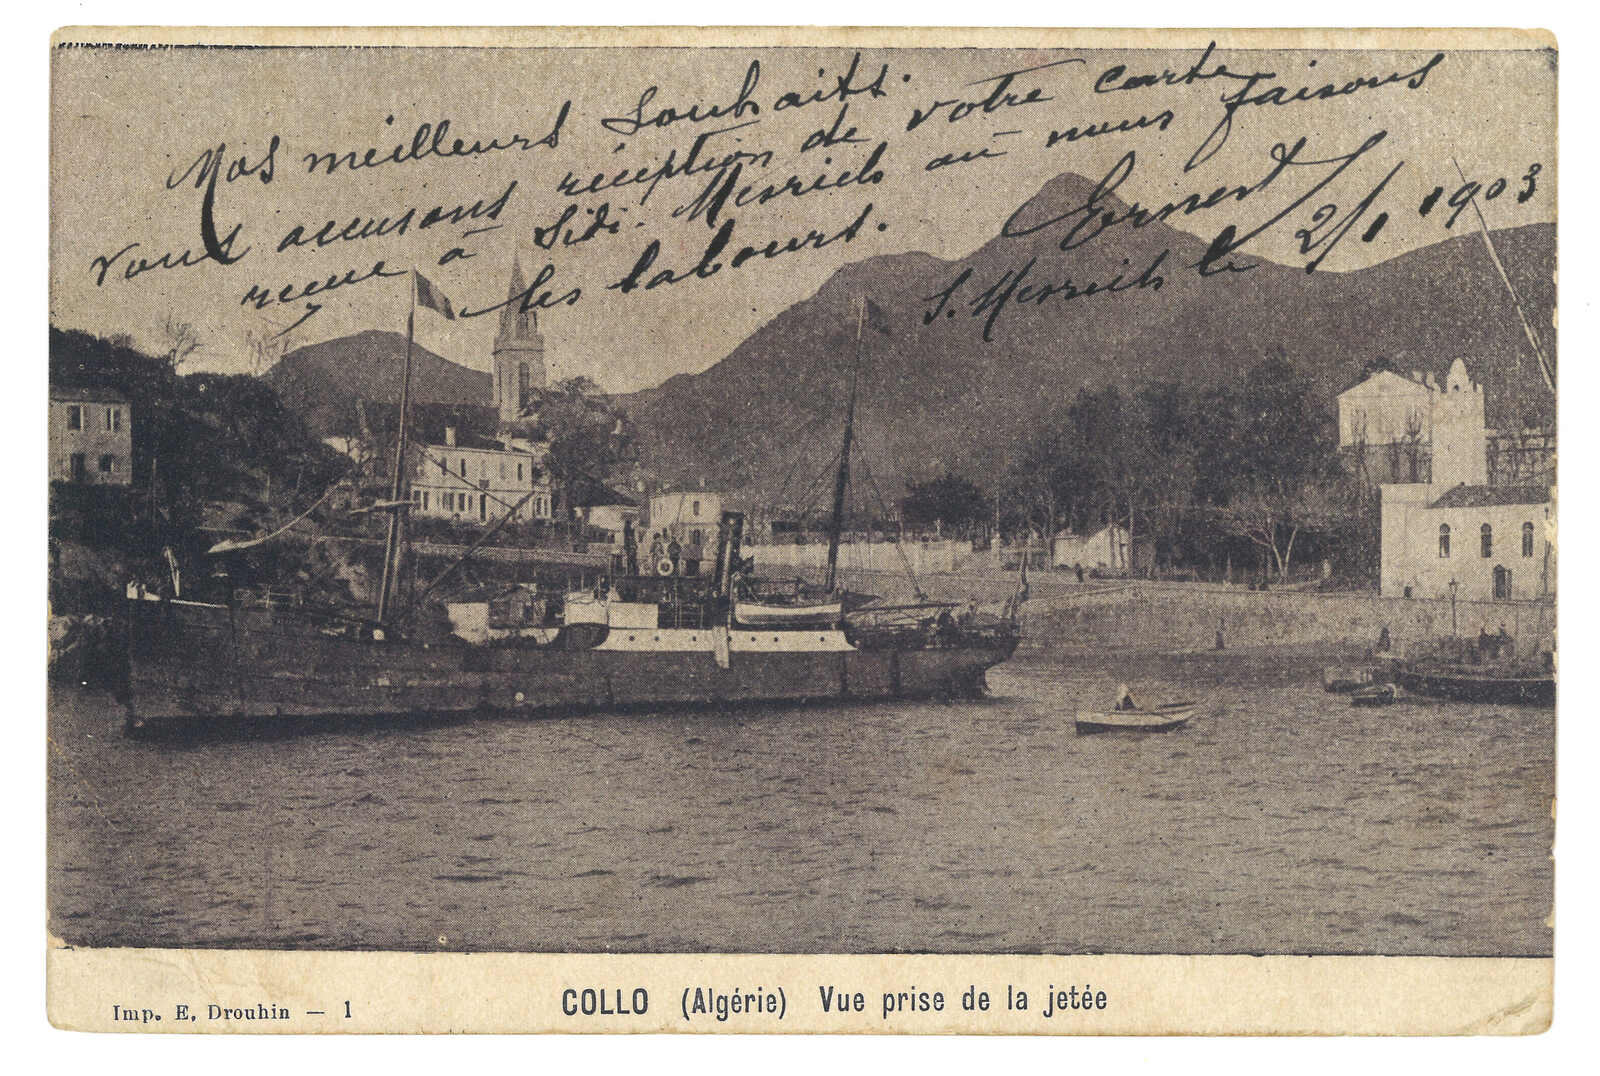 Nos meilleurs souhaits.
Vous accusons réception de votre carte
reçue à Sidi. Mesrich où nous faisons
les labours. Ernest
S. Mesrich le 2/1 1903
Imp. E. Drouhin — 1
COLLO (Algérie) Vue prise de la jetée